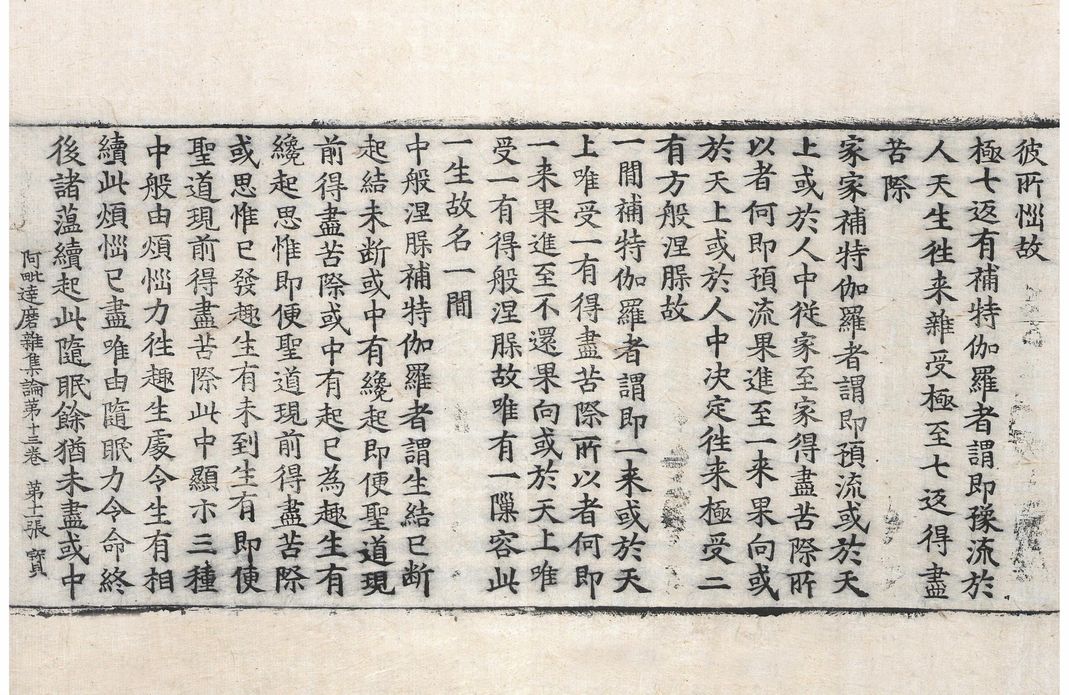 彼所惱故
極七返有補特伽羅者謂即豫流於
人天生徃来雜受極至七返得盡
苦際
家家補特伽羅者謂即預流或於天
上或於人中從家至家得盡苦際所
以者何即預流果進至一来果向或
於天上或於人中决定徃来極受二
有方般涅脲故
一間補特伽羅者謂即一来或於天
上唯受一有得盡苦際所以者何即
一来果進至不還果向或於天上唯
受一有得般涅脲故唯有一隟容此
一生故名一間
中般涅脲補特伽羅者謂生結已斷
起結未斷或中有纔起即便聖道現
前得盡苦際或中有起已為趣生有
纔起思惟即便聖道現前得盡苦際
或思惟已發趣生有未到生有即便
聖道現前得盡苦際此中顯示三種
中般由煩惱力徃趣生處令生有相
續此煩惱已盡唯由隨眠力令命終
後諸蘊續起此隨眠餘猶未盡或中
阿毗達磨雜集論第十三卷 第十一張 寳